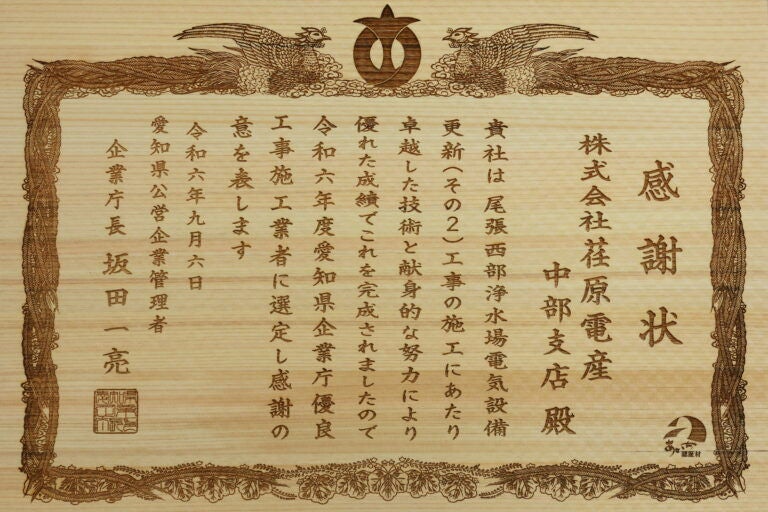 感謝状
株式会社荏原電産
中部支店 殿
貴社は尾張西部浄水場電気設備
更新(その2)工事の施工にあたり
卓越した技術と献身的な努力により
優れた成績でこれを完成されましたので
令和六年度愛知県企業庁優良
工事施工業者に選定し感謝の
意を表します
令和六年九月六日
愛知県公営企業管理者
企業庁長 坂田一亮
認証材